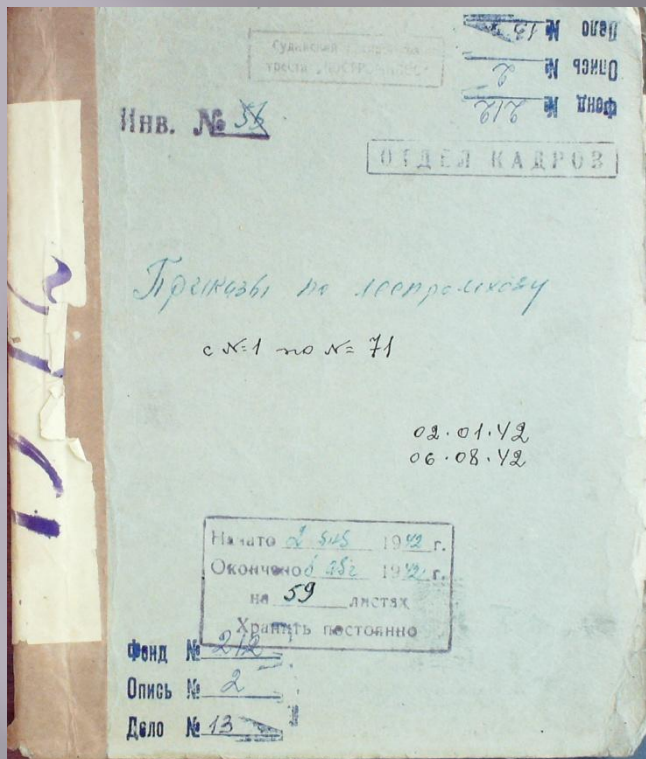 Дело № 13
Опись № 2
Фонд № 212
Инв. № 56
ОТДЕЛ КАДРОВ
Приказы по леспромхозу
с № 1 по № 71
02.01.42
06.08.42
Начато 2 янв 1942 г.
Окончено 6 авг 1942 г.
на 59 листах
Хранить постоянно
Фонд № 212
Опись № 2
Дело № 13